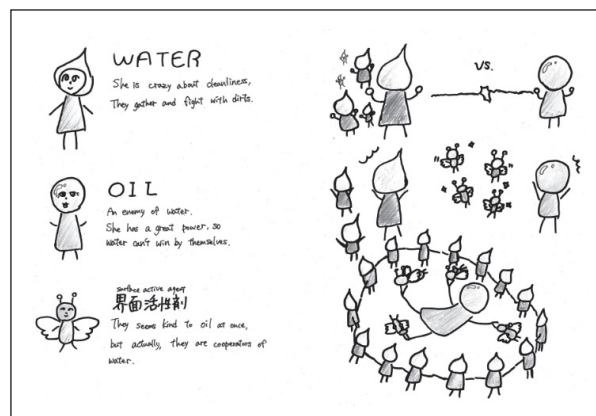 WATER
She is crazy about cleanliness,
They gather and fight with dirts.
OIL
An enemy of water.
She has a great power, so
water can't win by themselves.
surface active agent
界面活性剤
They seems kind to oil at once,
but actually, they are cooperators of
water.
VS.